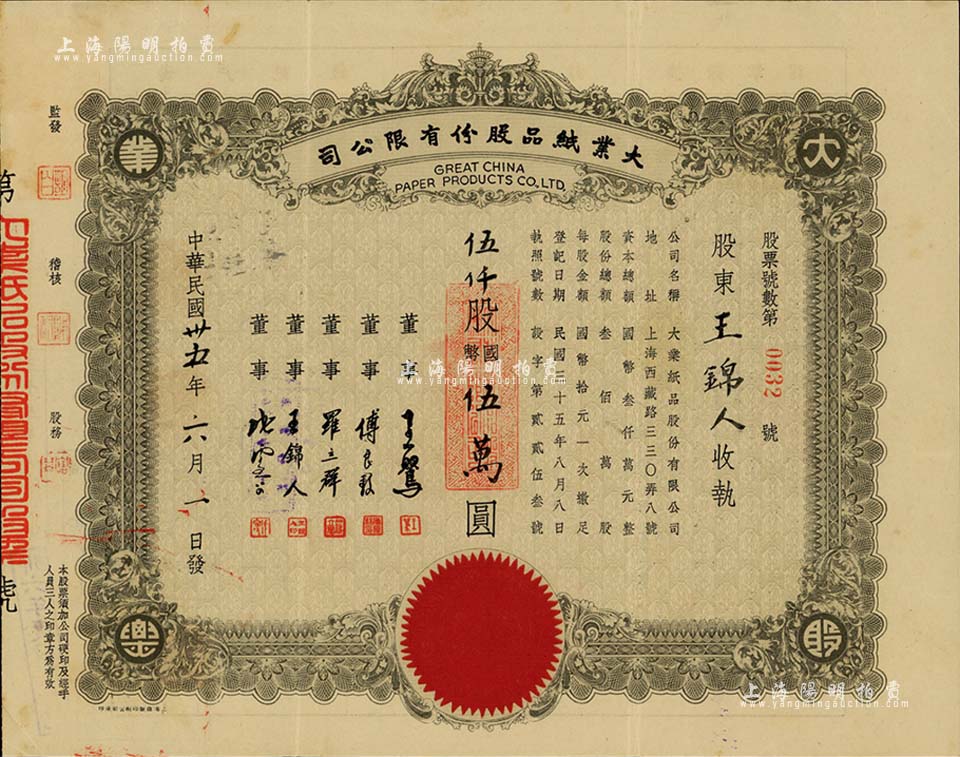 上海陽明拍賣
www.yangmingauction.com
大業紙品股份有限公司
GREAT CHINA
PAPER PRODUCTS CO., LTD.
大
業
股票號數第 0032 號
股東 王錦人 收執
公司名稱 大業紙品股份有限公司
地址 上海西藏路三三〇弄八號
資本總額 國幣叁仟萬元整
股份總額 叁佰萬股
每股金額 國幣拾元一次繳足
登記日期 民國三十五年八月八日
執照號數 設字第貳貳伍叁號
伍仟股 國幣 伍萬圓
董事
董事 傅良駿
董事 羅立群
董事 王錦人
董事
中華民國卅五年六月一日發
監發
稽核
股務
第
號
本股票須加公司硬印及經手
人員三人之印章方為有效
股
上海陽明拍賣
www.yangmingauction.com
上海陽明拍賣
www.yangmingauction.com
上海陽明拍賣
www.yangmingauction.com